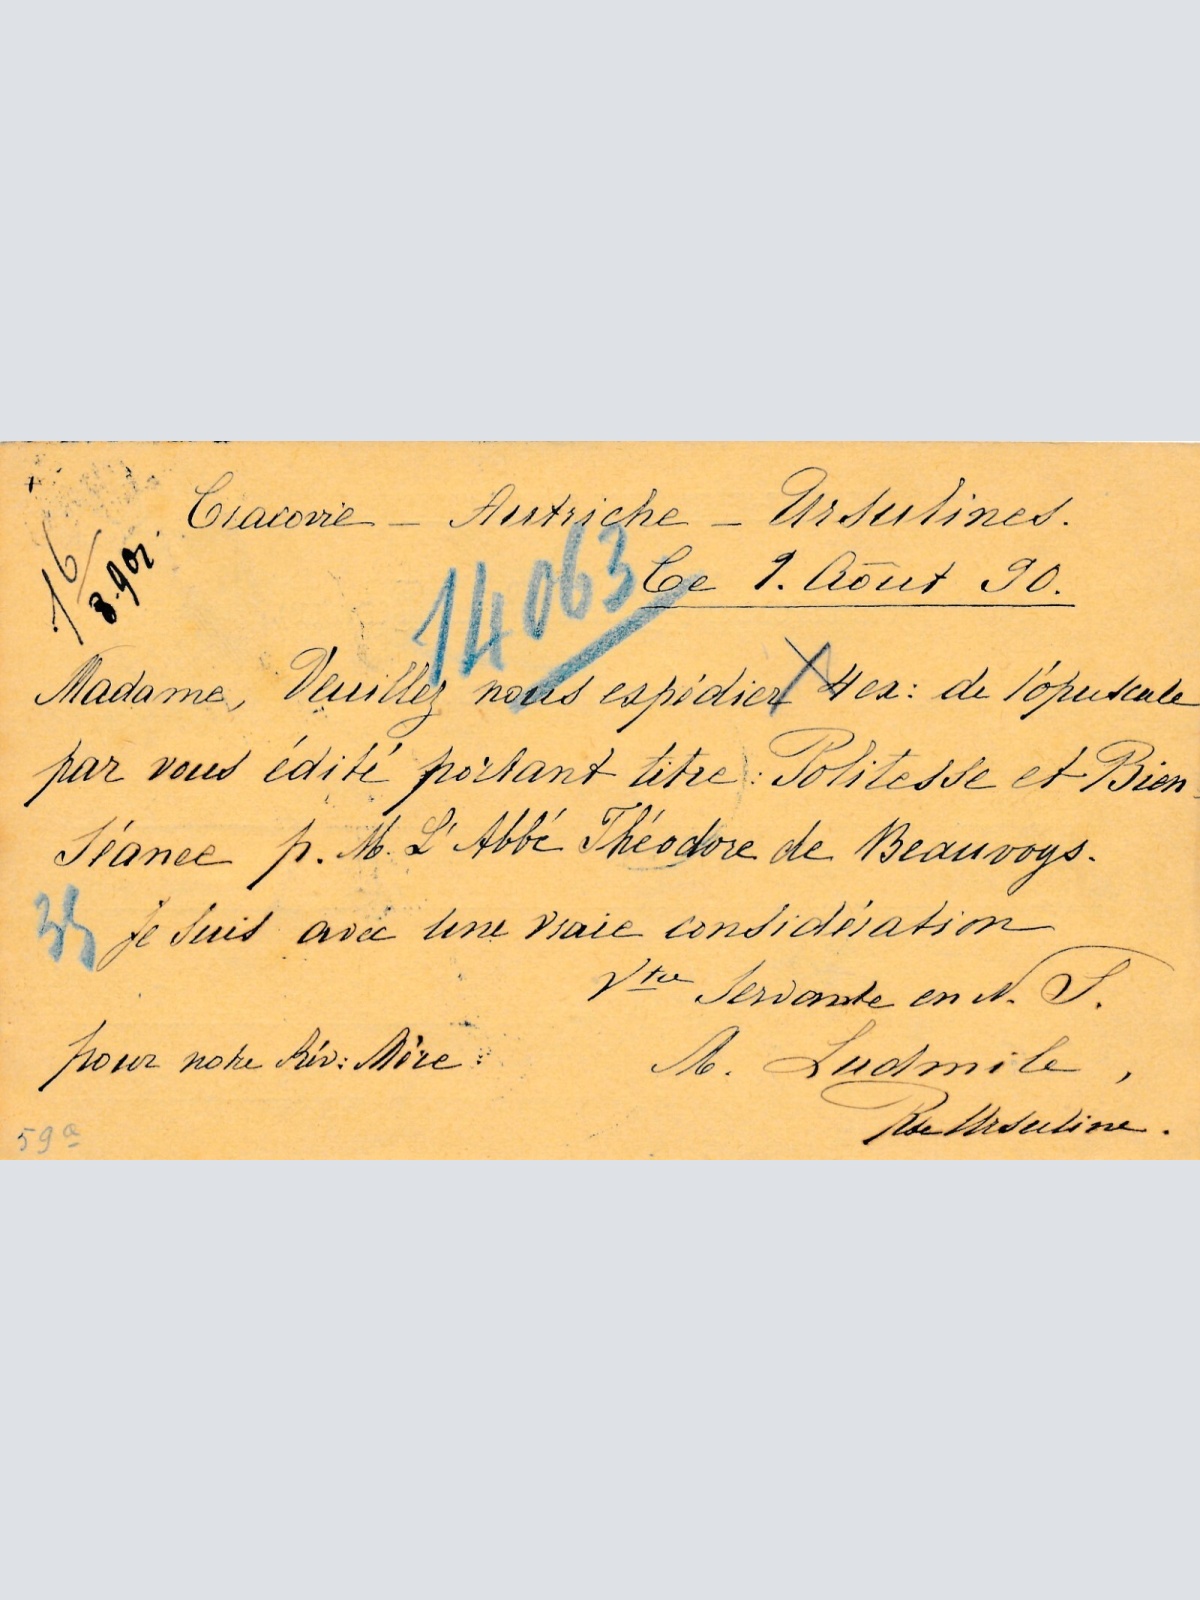 Cracovie – Autriche – Ursulines.
16/8.90.
14063
Ce 9. Août 90.
Madame, Veuillez nous expédier 4 ex: de l'opuscule
par vous édité portant titre: Politesse et Bien-
séance p. M. L'Abbé Théodore de Beauvoys.
35
Je suis avec une vraie considération
Vtre Servante en N. S.
pour notre Rév: Mère:
M. Ludmile,
Rse Ursuline.
59a